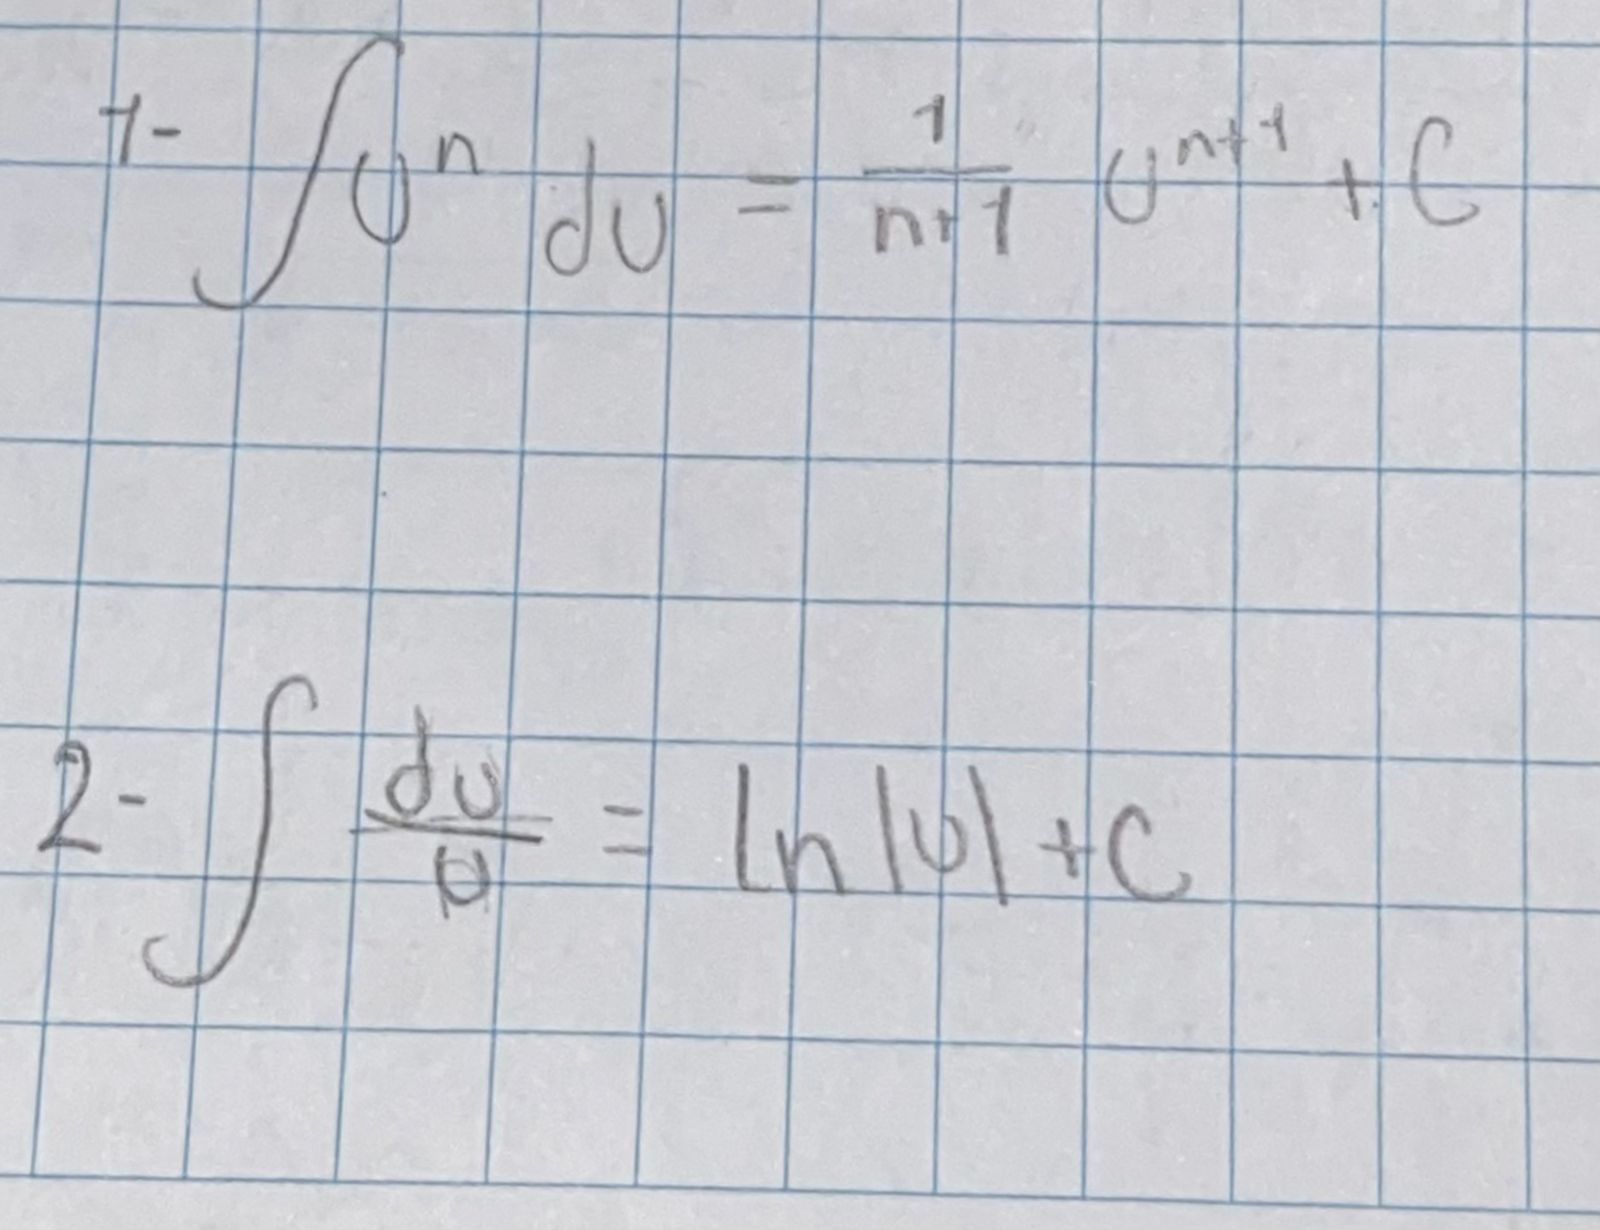 1- ∫uⁿ du = 1/(n+1) uⁿ⁺¹ + C
2- ∫ du/u = ln|u| + C